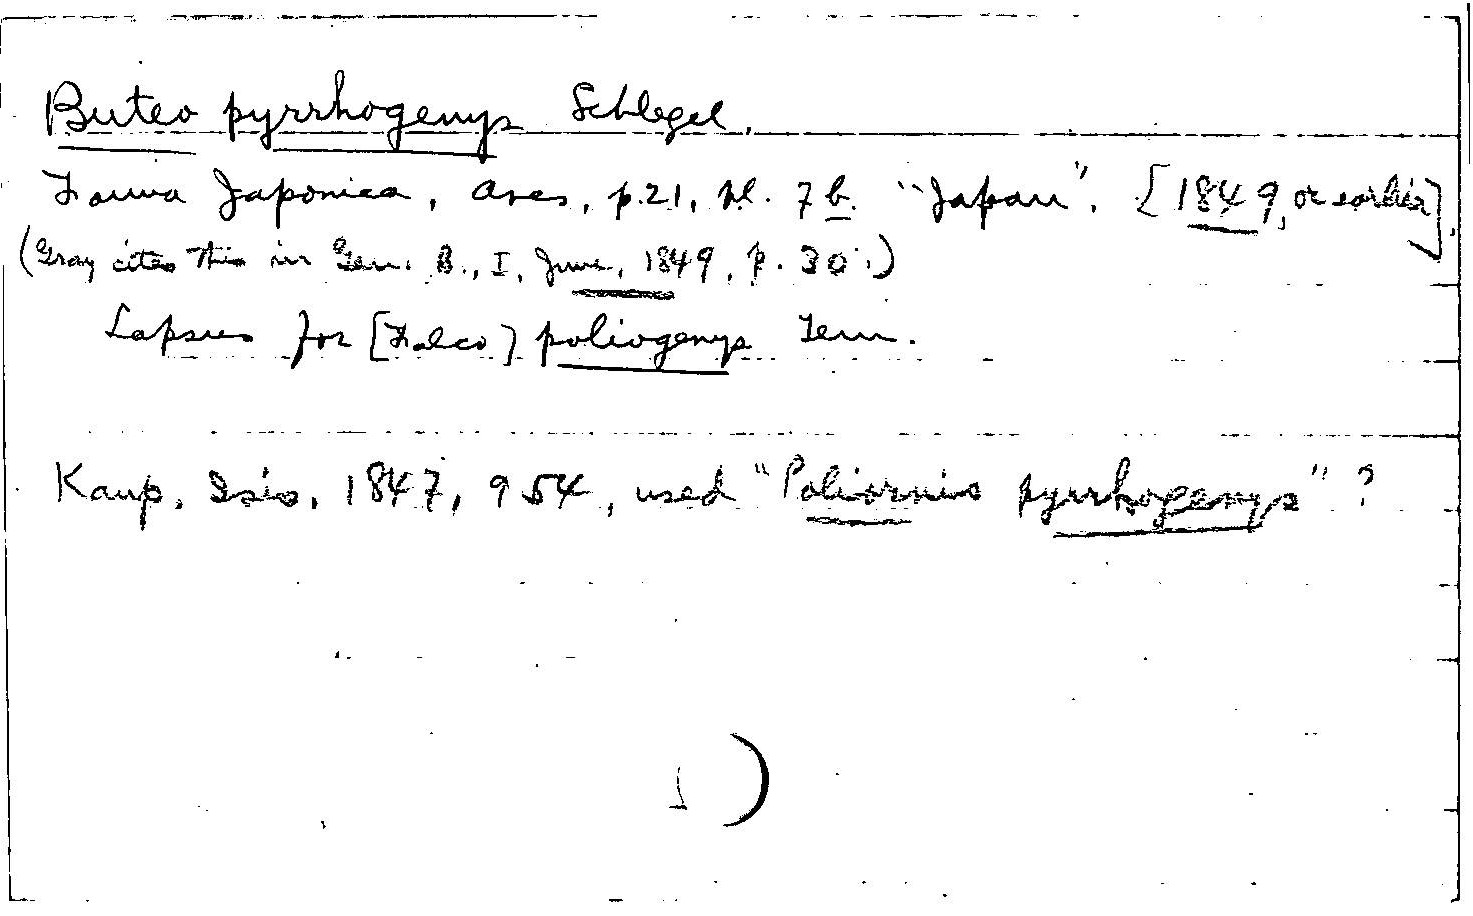 Buteo pyrrhogenys Schlegel.
Fauna Japonica, Aves, p.21, pl. 7b. "Japan". [1849, or earlier].
(Gray cites this in Gen. B., I, June, 1849, p. 30.)
Lapsus for [Falco] poliogenys Tem.
Kaup, Isis, 1847, 954, used "Poliornis pyrrhogenys"?